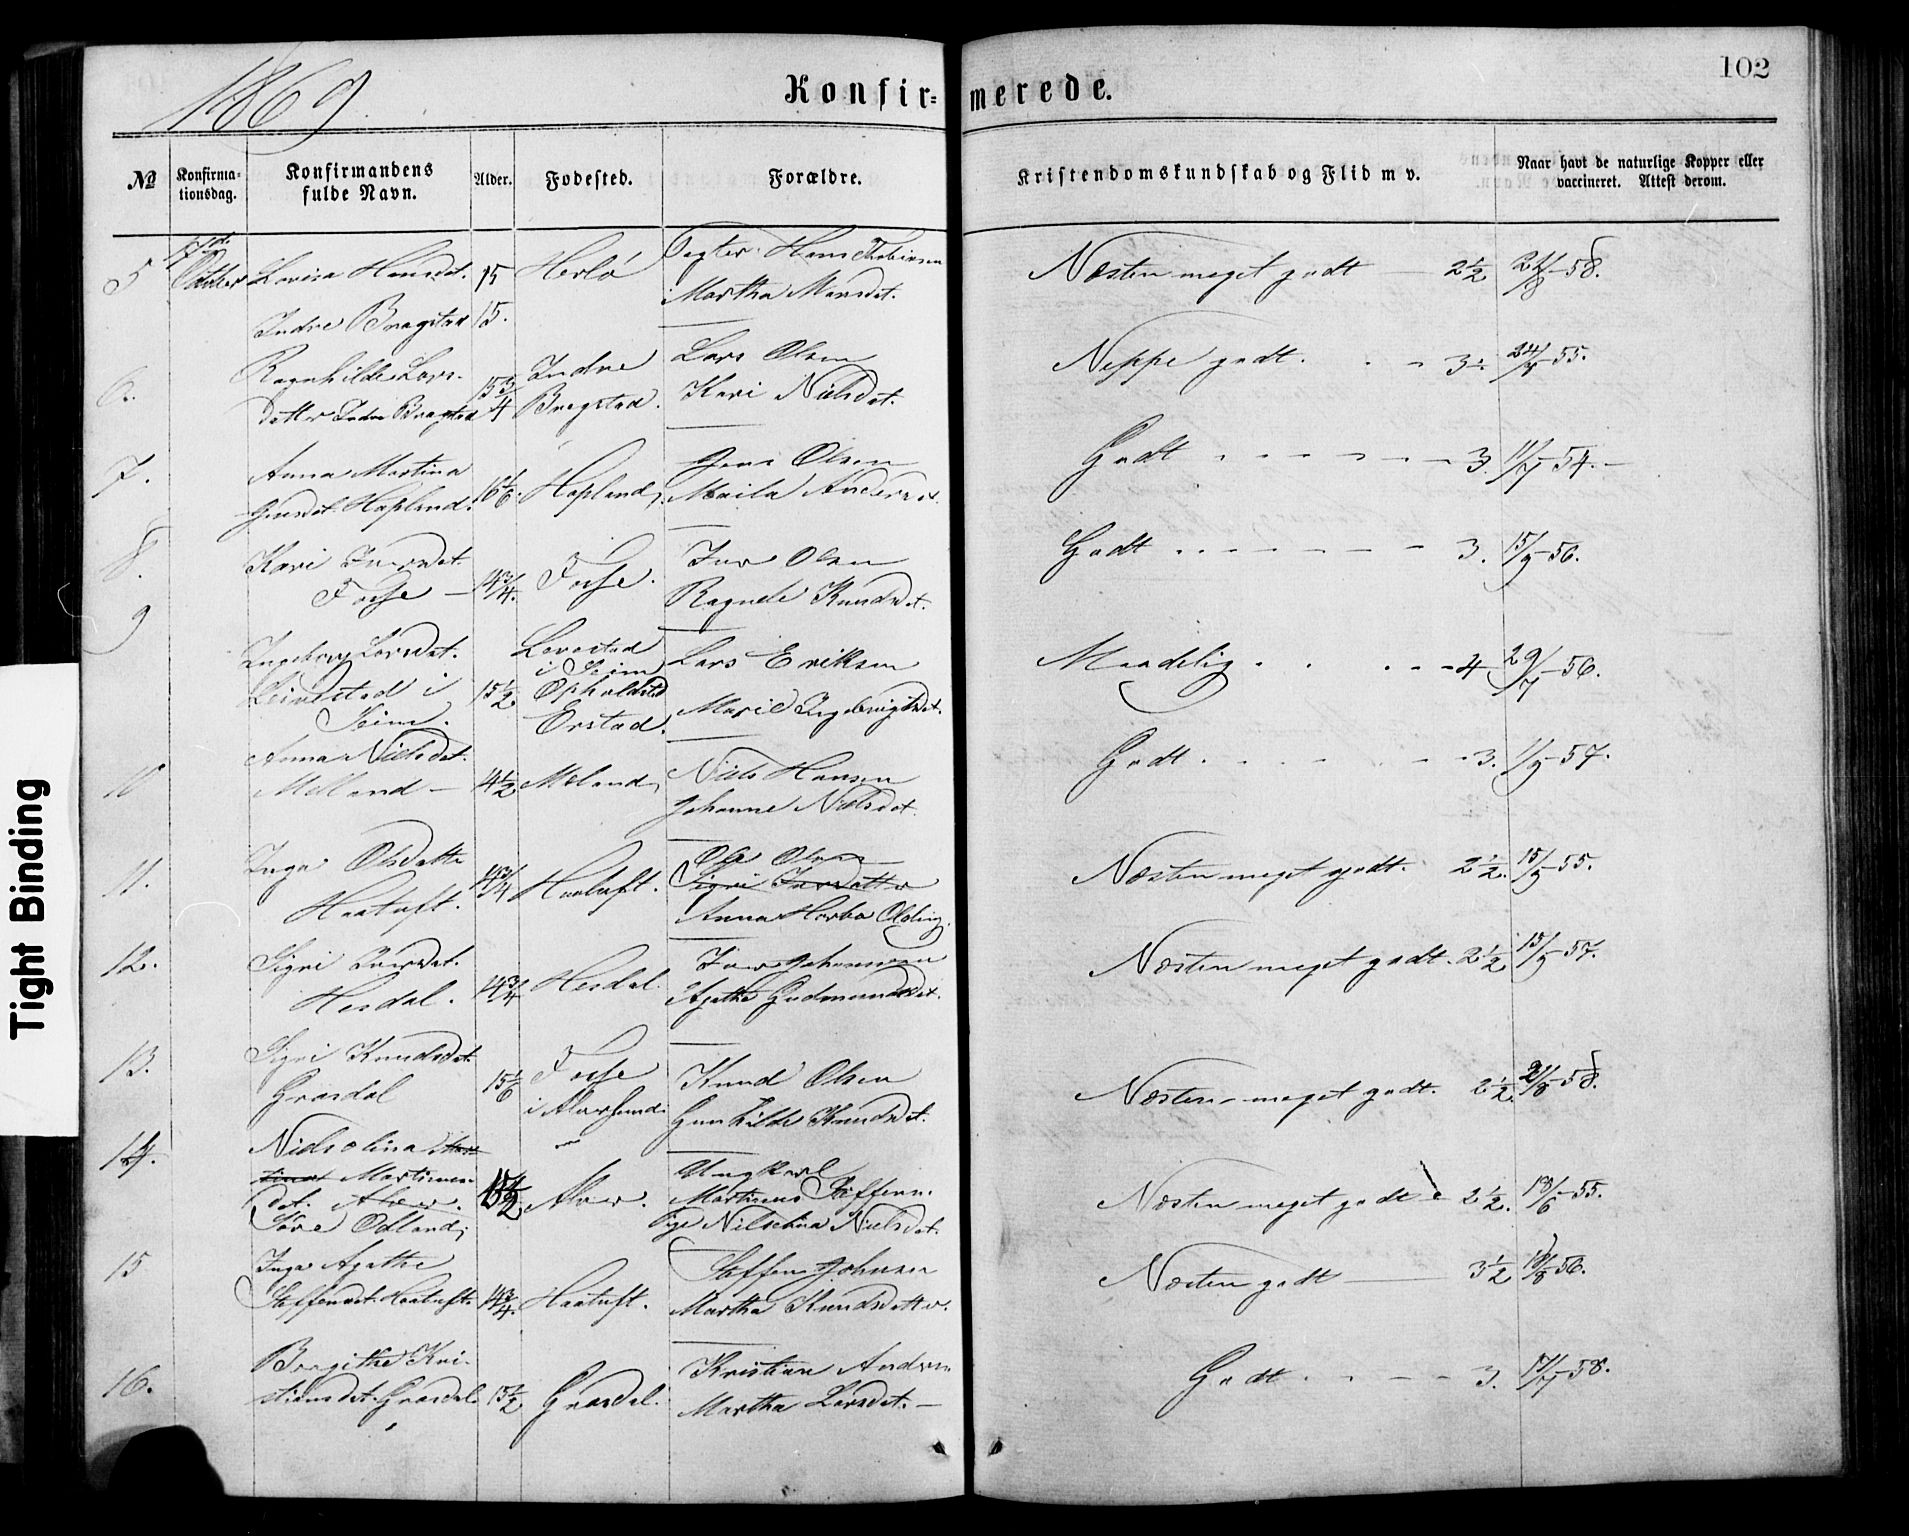 102
1869
Konfir= merede.
No Konfirma-tionsdag. Konfirmandens fulde Navn. Alder. Fødested. Forældre. Kristendomskundskab og Flid m v. Naar havt de naturlige Kopper eller vaccineret. Attest derom.
5 October Lovisa Hansdt. 15 Herlø Hans Tobiasen
Martha Monsdt. Næsten meget godt 2½ 58.
Indre Bragstad 15.
6. Ragnhilde Lars-
datter Indre Bragstad 15¾ Indre
Bragstad. Lars Olsen
Kari Nielsdt. Neppe godt. 3 55.
7. Anna Martina
Jensdt. Hopland. 16 Hopland, Jens Olsen
Andersdt. Godt 3. 11/7-54.
8. Kari Iversdt.
Fosse 14¾. Fosse. Iver Olsen
Ragnele Knudsdt. Godt 3. 15/9-56.
9 Ingeborg Larsdt.
i
Seim. 15½
i Seim
Opholdsted
Erstad. Lars Eriksen
Maadelig 4 29/7-56.
10 Anna Nielsdt.
Melland 14½ Meland, Niels Hansen
Johanne Nielsdt. Godt. 3. 1/9-57.
11. Inga Olsdatter
Haatuft. 14¾ Haatuft. Ole Olsen
Sigri Iversdatter
Anna Næsten meget godt. 2½. 15/9-55.
12. Sigri Iversdt.
Hesdal. 14¾ Hesdal. Iver Johannesen
Agathe Gudmundsdt. Næsten meget godt. 2½ 15/9-57.
13. Sigri Knudsdt.
Grasdal 15 Fosse
i Alversund. Knud Olsen
Gunhilde Knudsdt. Næsten meget godt. 2½ 58.
14. Nielsolina
Martinus-
dt. Alver.
Odland, 15½ Alver. Ungkarl
Martinus Steffens.
Pige Nilsolina Nielsdt. Næsten meget godt 2½. 18/6-55.
15 Inga Agathe
Steffensdt. Haatuft. 14¾. Haatuft. Steffen Johnsen
Martha Knudsdatter. Næsten godt 3½ 56.
16. Bergithe Kri-
stiansdt. Grasdal 15½ Grasdal. Kristian Anders
Martha Larsdt. Godt. 3. 58.
Tight Binding